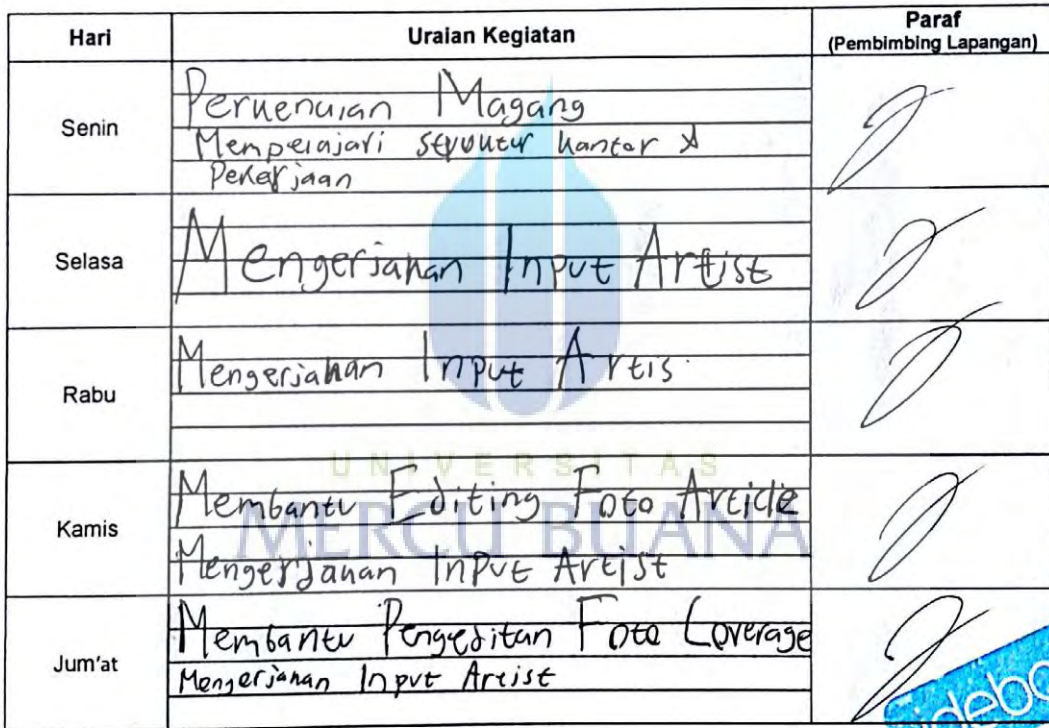 Hari Uraian Kegiatan Paraf
(Pembimbing Lapangan)
Senin
Perkenalan Magang
Mempelajari struktur kantor &
Pekerjaan
Selasa
Mengerjakan Input Artist
Rabu
Mengerjakan Input Artis
UNIVERSITAS
MERCU BUANA
Kamis
Membantu Editing Foto Article
Mengerjakan Input Artist
Jum'at
Membantu Pengeditan Foto Coverage
Mengerjakan Input Artist
idebo